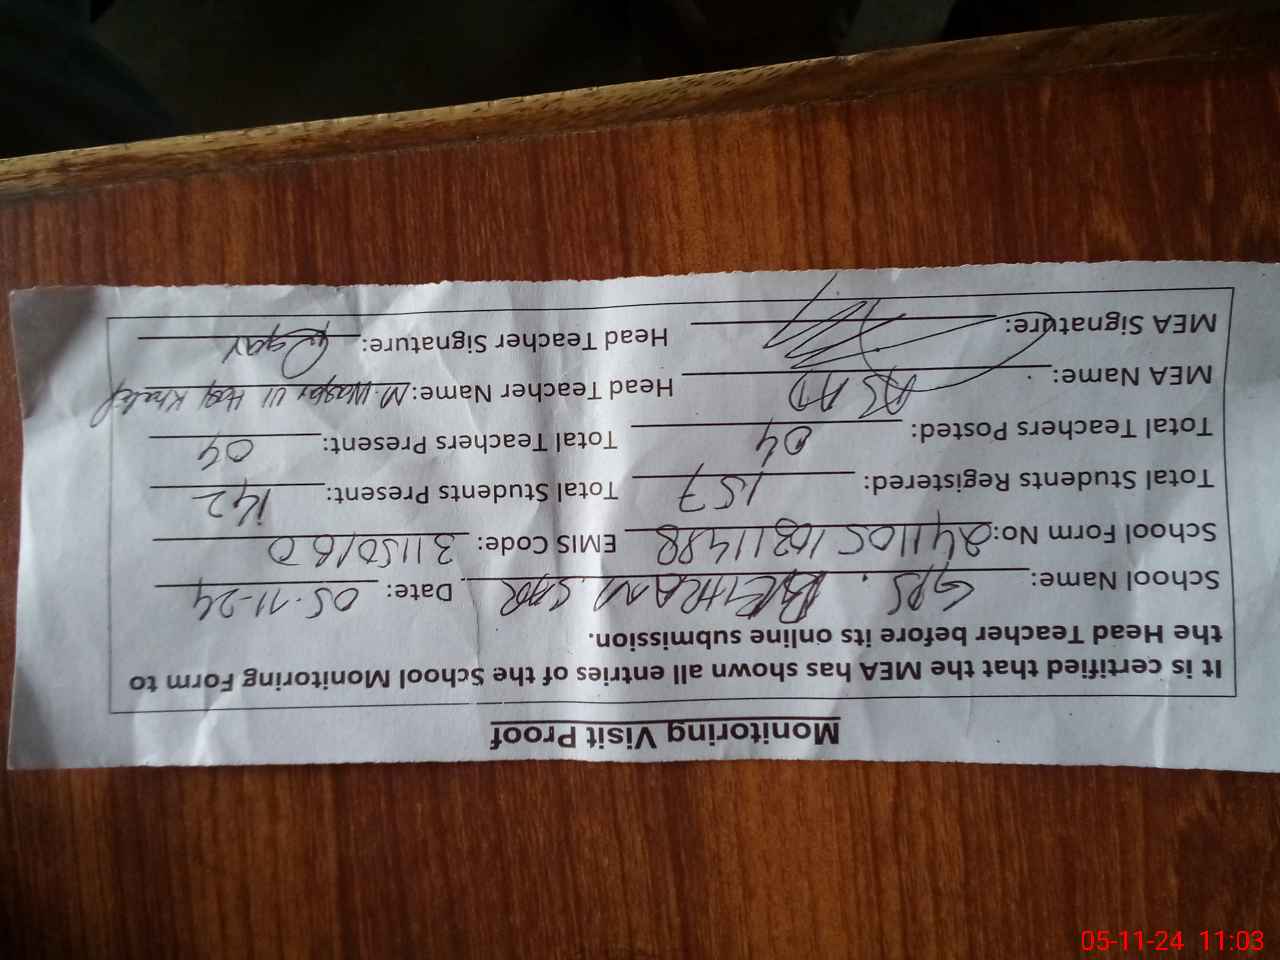 Monitoring Visit Proof
It is certified that the MEA has shown all entries of the School Monitoring Form to
the Head Teacher before its online submission.
School Name: GPS. SAR Date: 05-11-24
School Form No: EMIS Code: 31150160
Total Students Registered: 157 Total Students Present: 142
Total Teachers Posted: 04 Total Teachers Present: 04
MEA Name: ASAD Head Teacher Name: M. Waqar Ul Haq
MEA Signature: Head Teacher Signature:
05-11-24 11:03